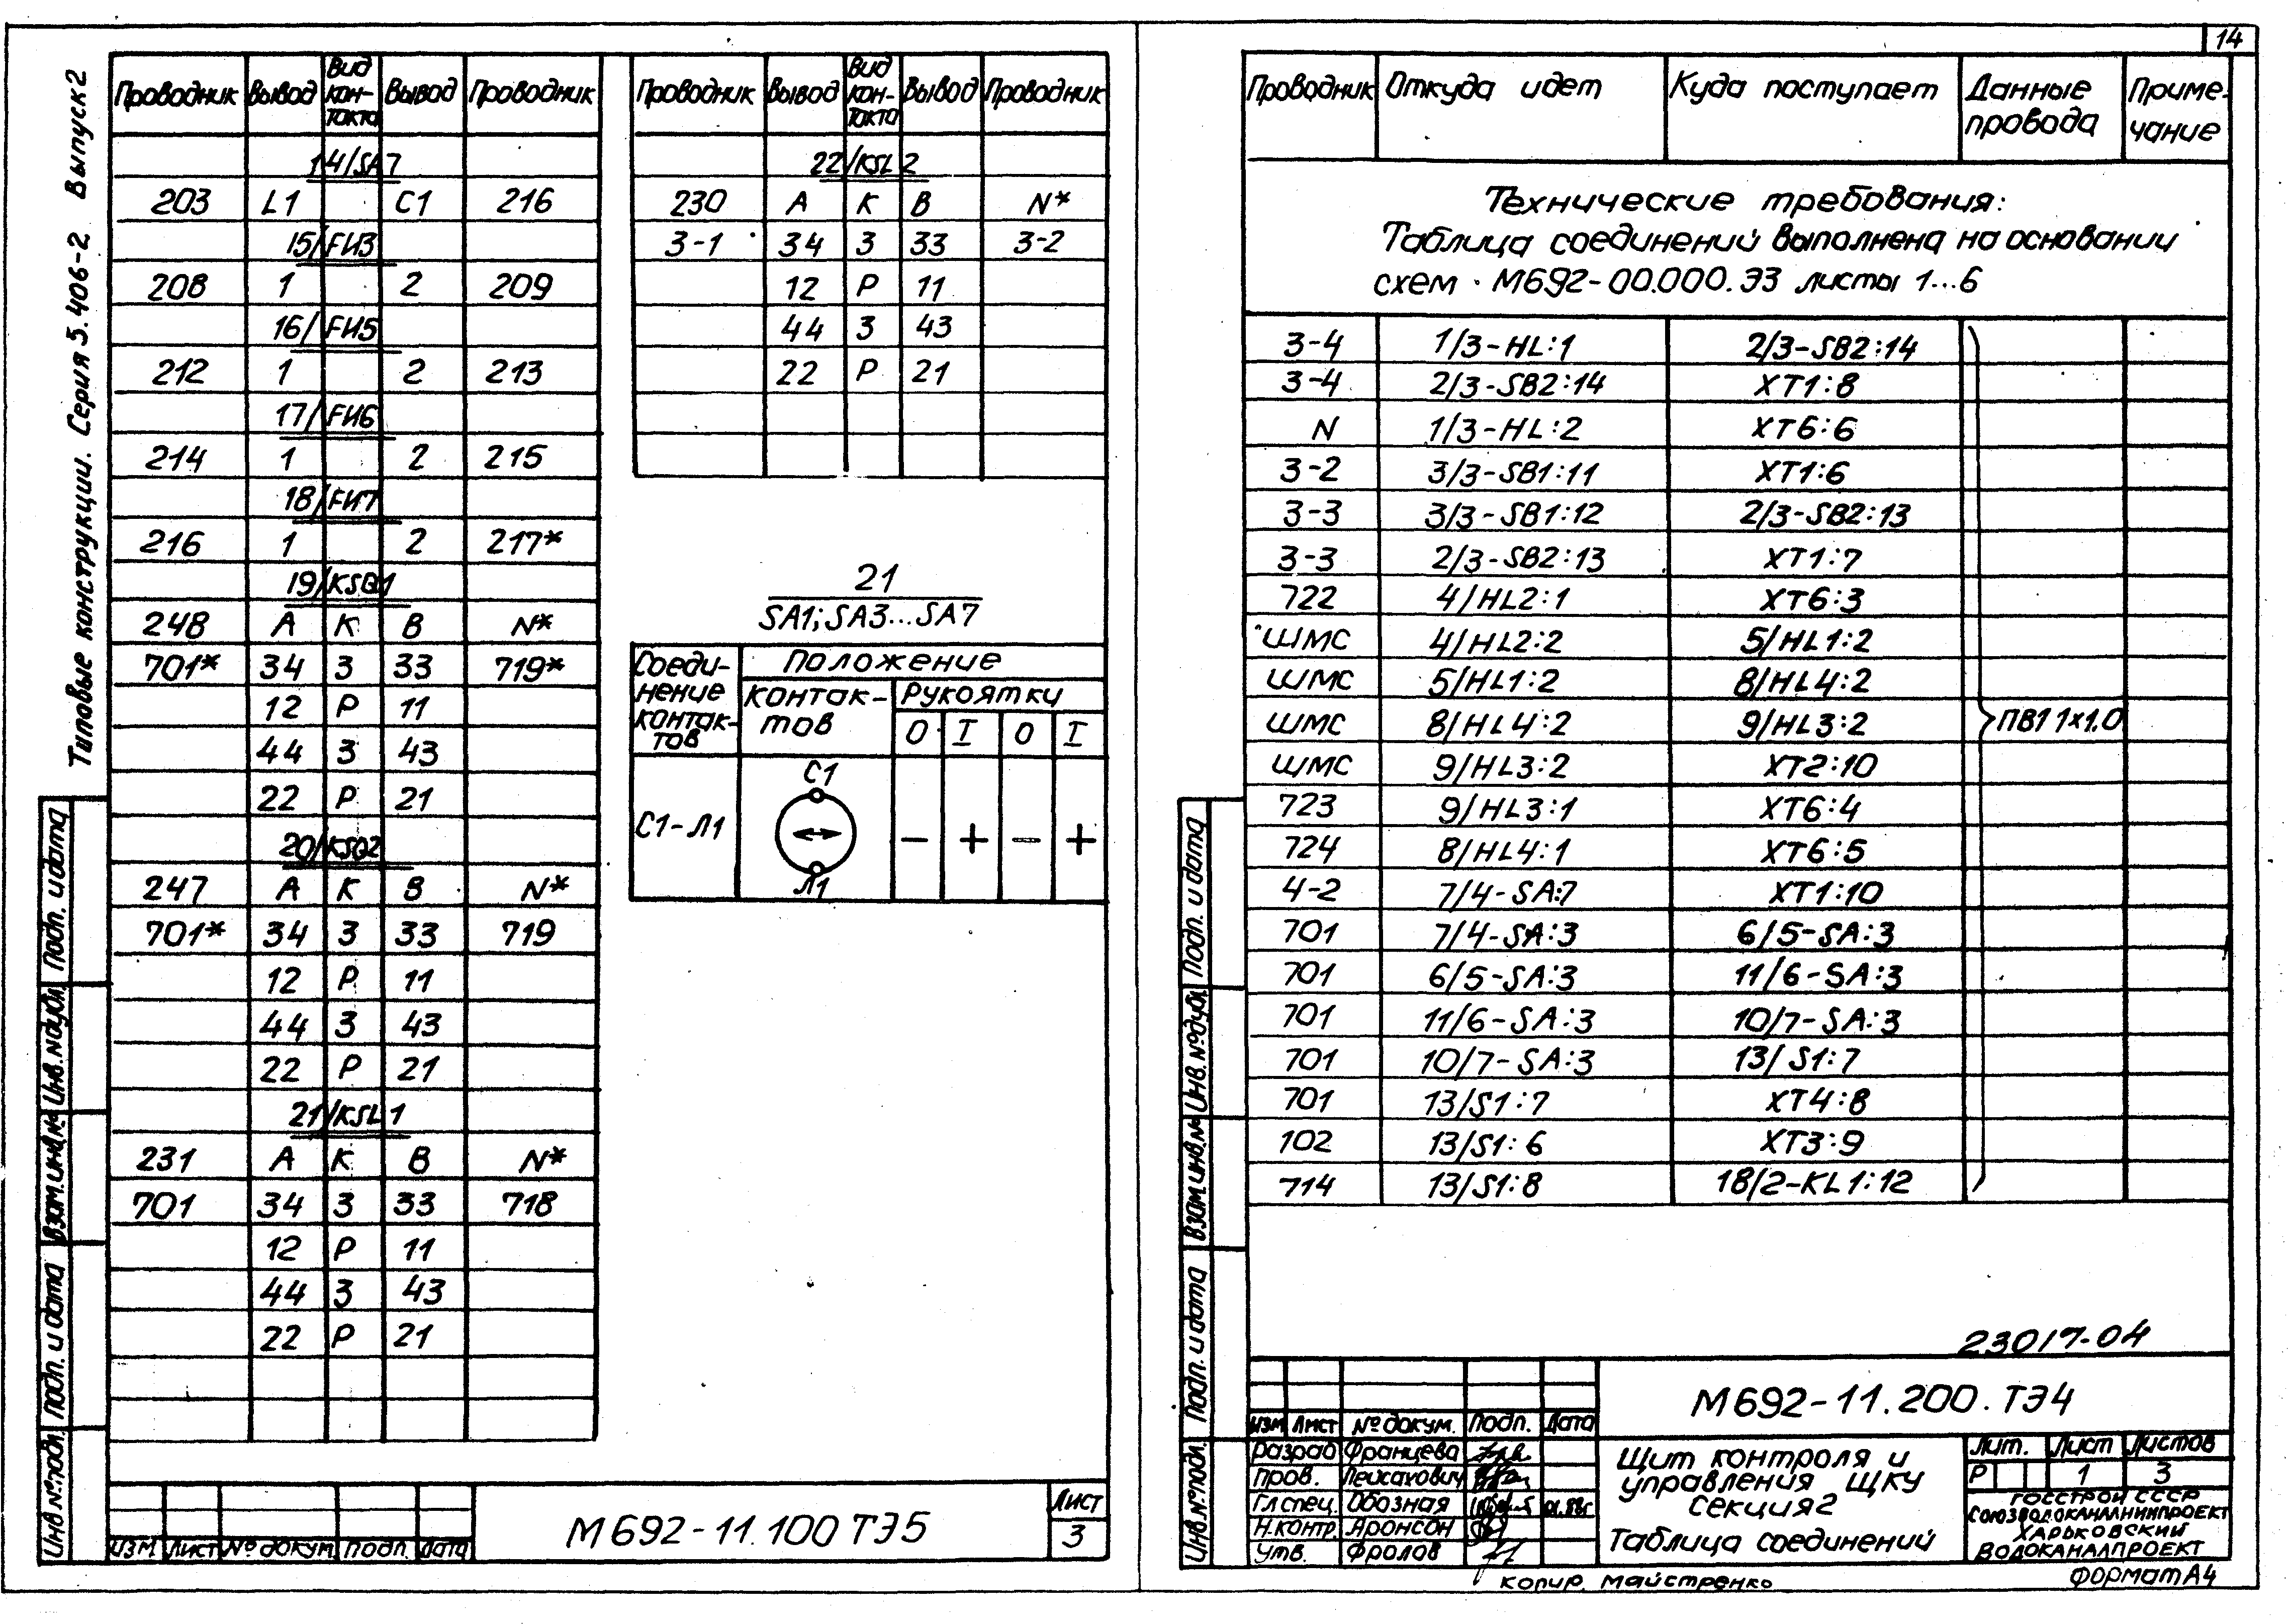 Типовые конструкции. Серия 5.406-2 Выпуск 2
Проводник Вывод Вид кон-такта Вывод Проводник
14/SA7
203 L1 C1 216
15/FИ3
208 1 2 209
16/FИ5
212 1 2 213
17/FИ6
214 1 2 215
18/FИ7
216 1 2 217*
19/KSQ1
248 А К В N*
701* 34 З 33 719*
12 Р 11
44 З 43
22 Р 21
20/KSQ2
247 А К В N*
701* 34 З 33 719
12 Р 11
44 З 43
22 Р 21
21/KSL1
231 А К В N*
701 34 З 33 718
12 Р 11
44 З 43
22 Р 21
Проводник Вывод Вид кон-такта Вывод Проводник
22/KSL2
230 А К В N*
3-1 34 З 33 3-2
12 Р 11
44 З 43
22 Р 21
21
SA1; SA3...SA7
Соеди-нение контак-тов
Положение
контак-тов
Рукоятки
0 I 0 I
С1
С1-Л1 − + − +
Л1
Инв.№подл. Подп. и дата Взам.инв.№ Инв.№дубл. Подп. и дата
Изм Лист № докум. Подп. Дата
М692-11.100 ТЭ5
Лист
3
14
Проводник Откуда идет Куда поступает Данные провода Приме-чание
Технические требования:
Таблица соединений выполнена на основании
схем М692-00.000.Э3 листы 1...6
3-4 1/3-HL:1 2/3-SB2:14
3-4 2/3-SB2:14 XT1:8
N 1/3-HL:2 XT6:6
3-2 3/3-SB1:11 XT1:6
3-3 3/3-SB1:12 2/3-SB2:13
3-3 2/3-SB2:13 XT1:7
722 4/HL2:1 XT6:3
ШМС 4/HL2:2 5/HL1:2
ШМС 5/HL1:2 8/HL4:2
ШМС 8/HL4:2 9/HL3:2 ПВ1 1×1.0
ШМС 9/HL3:2 XT2:10
723 9/HL3:1 XT6:4
724 8/HL4:1 XT6:5
4-2 7/4-SA:7 XT1:10
701 7/4-SA:3 6/5-SA:3
701 6/5-SA:3 11/6-SA:3
701 11/6-SA:3 10/7-SA:3
701 10/7-SA:3 13/S1:7
701 13/S1:7 XT4:8
102 13/S1:6 XT3:9
714 13/S1:8 18/2-KL1:12
23017-04
Инв.№подл. Подп. и дата Взам.инв.№ Инв.№дубл. Подп. и дата
М692-11.200.ТЭ4
Изм Лист № докум. Подп. Дата
Разраб Францева
Пров. Лейсахович
Гл.спец. Обозная 01.88г
Н.контр. Аронсон
Утв. Фролов
Щит контроля и
управления ЩКУ
секция 2
Таблица соединений
Лит. Лист Листов
Р 1 3
ГОССТРОЙ СССР
СОЮЗВОДОКАНАЛНИИПРОЕКТ
ХАРЬКОВСКИЙ
ВОДОКАНАЛПРОЕКТ
Копир. Майстренко
Формат А4